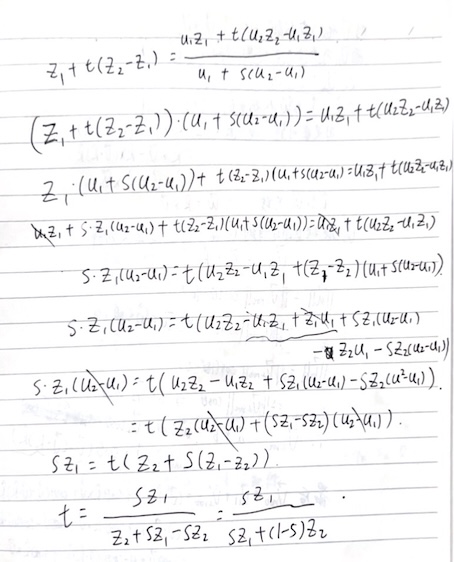 z₁ + t(z₂-z₁) = (u₁z₁ + t(u₂z₂-u₁z₁)) / (u₁ + s(u₂-u₁))
(z₁+t(z₂-z₁))·(u₁+s(u₂-u₁)) = u₁z₁+t(u₂z₂-u₁z₁)
z₁·(u₁+s(u₂-u₁))+ t(z₂-z₁)(u₁+s(u₂-u₁) = u₁z₁+t(u₂z₂-u₁z₁)
u₁z₁ + s·z₁(u₂-u₁) + t(z₂-z₁)(u₁+s(u₂-u₁)) = u₁z₁ + t(u₂z₂-u₁z₁)
s·z₁(u₂-u₁) = t(u₂z₂-u₁z₁+(z₁-z₂)(u₁+s(u₂-u₁))
s·z₁(u₂-u₁) = t(u₂z₂-u₁z₁+z₁u₁+sz₁(u₂-u₁)
- z₂u₁ - sz₂(u₂-u₁))
s·z₁(u₂-u₁) = t(u₂z₂-u₁z₂ + sz₁(u₂-u₁)-sz₂(u²-u₁)).
= t(z₂(u₂-u₁)+(sz₁-sz₂)(u₂-u₁)).
sz₁ = t(z₂+s(z₁-z₂)).
t = sz₁ / (z₂+sz₁-sz₂) = sz₁ / (sz₁+(1-s)z₂) .